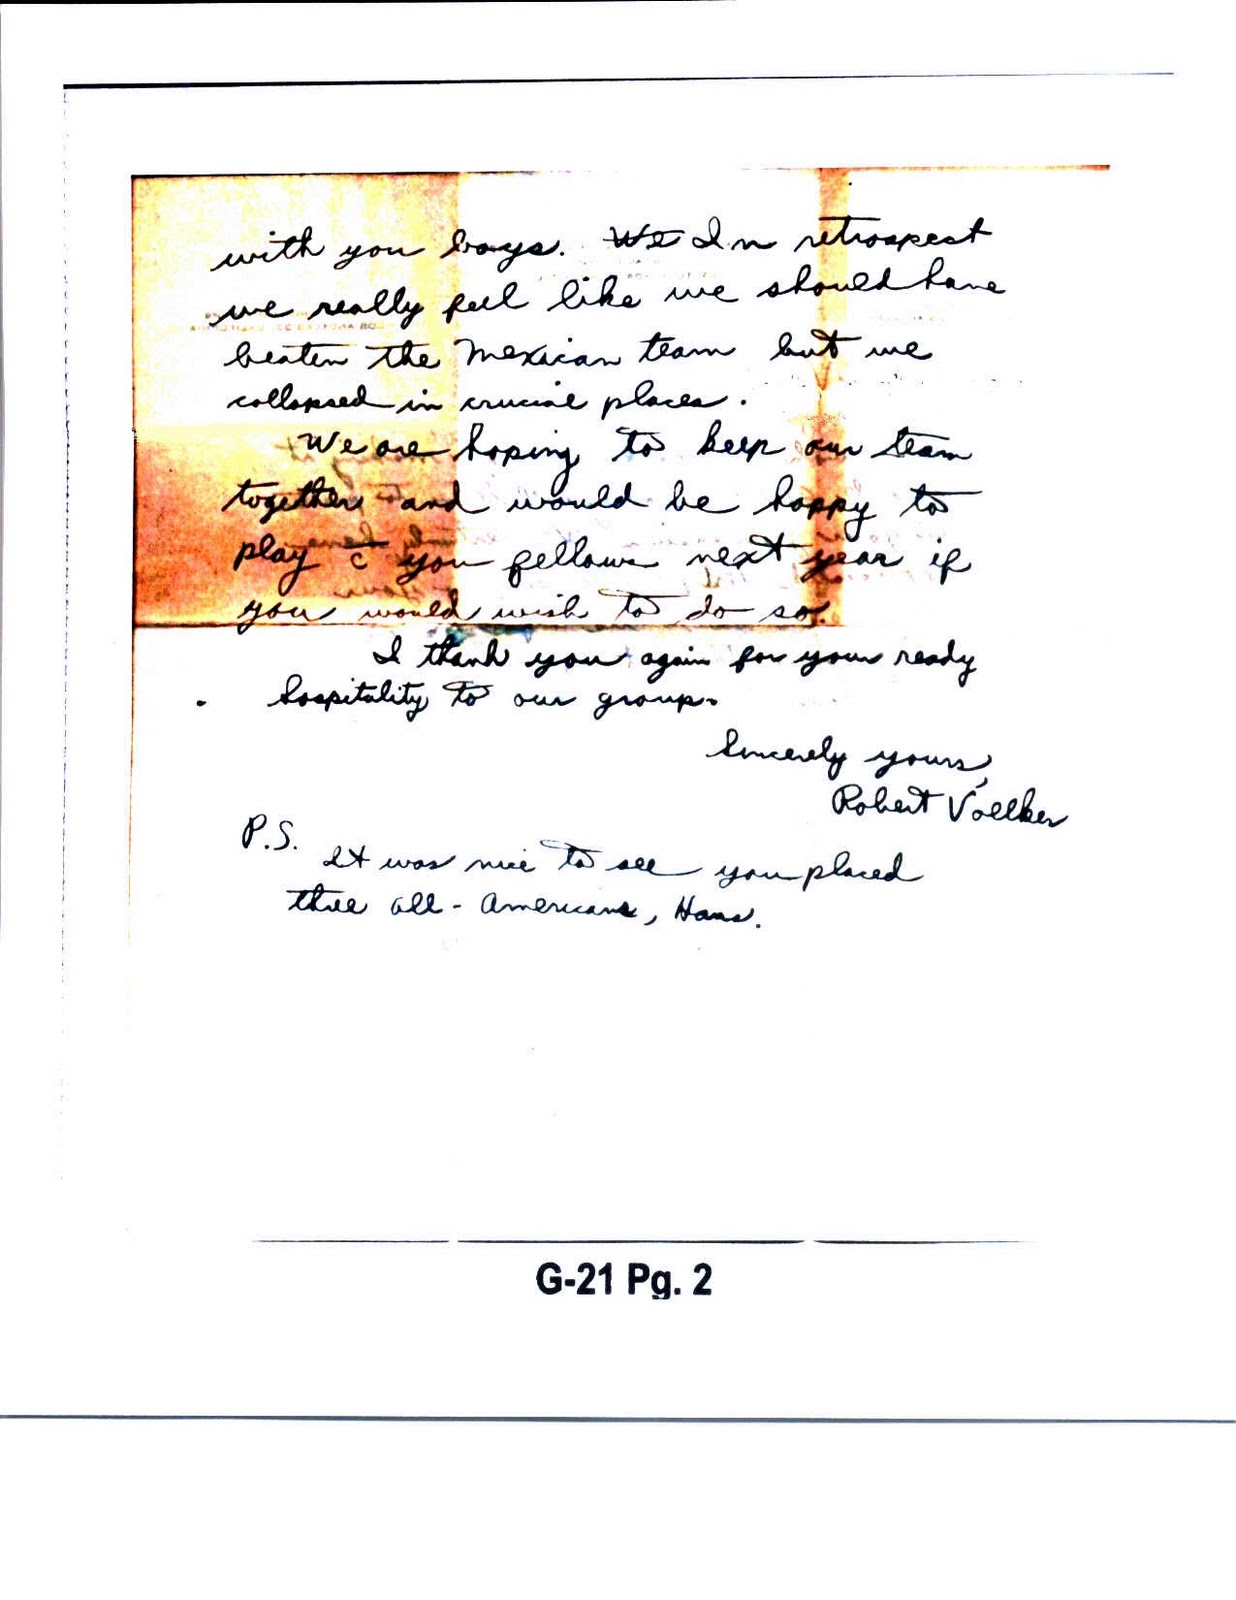 with you boys. We In retrospect
we really feel like we should have
beaten the Mexican team but we
collapsed in crucial places.
We are hoping to keep our team
together and would be happy to
play c̄ you fellows next year if
you would wish to do so.
I thank you again for your ready
hospitality to our group.
Sincerely yours,
Robert Voelker
P.S.
It was nice to see you placed
three all-Americans, Hans.
G-21 Pg. 2